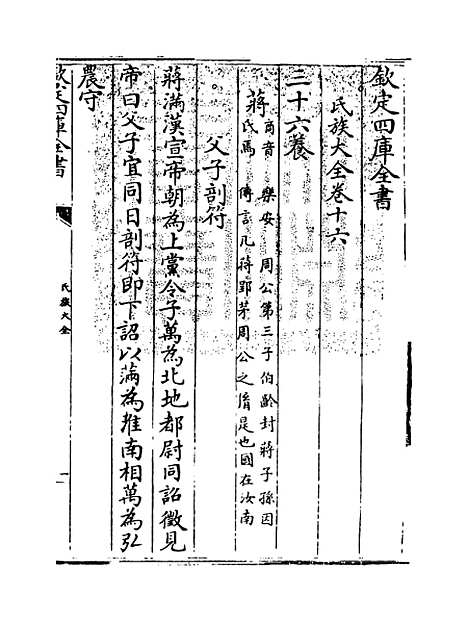 欽定四庫全書
氏族大全卷十六
三十六養
蔣
商音 樂安 周公第三子伯齡封蔣子孫因
氏焉 傳言凡蔣邢茅周公之𦙍是也國在汝南
父子剖符
蔣滿漢宣帝朝為上黨令子萬為北地都尉同詔徵見
帝曰父子宜同日剖符即下詔以滿為淮南相萬為弘
農守
欽定四庫全書
氏族大全
一